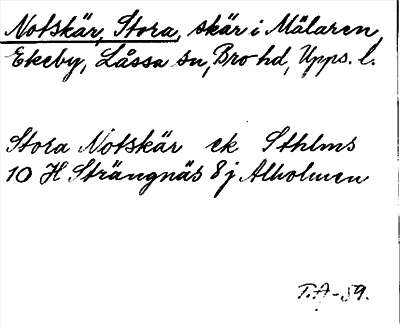 Notskär, Stora, skär i Mälaren,
Ekeby, Låssa sn, Bro hd, Upps. l.
Stora Notskär ek Sthlms
10 H Strängnäs 8 j Alholmen
T.A-59.